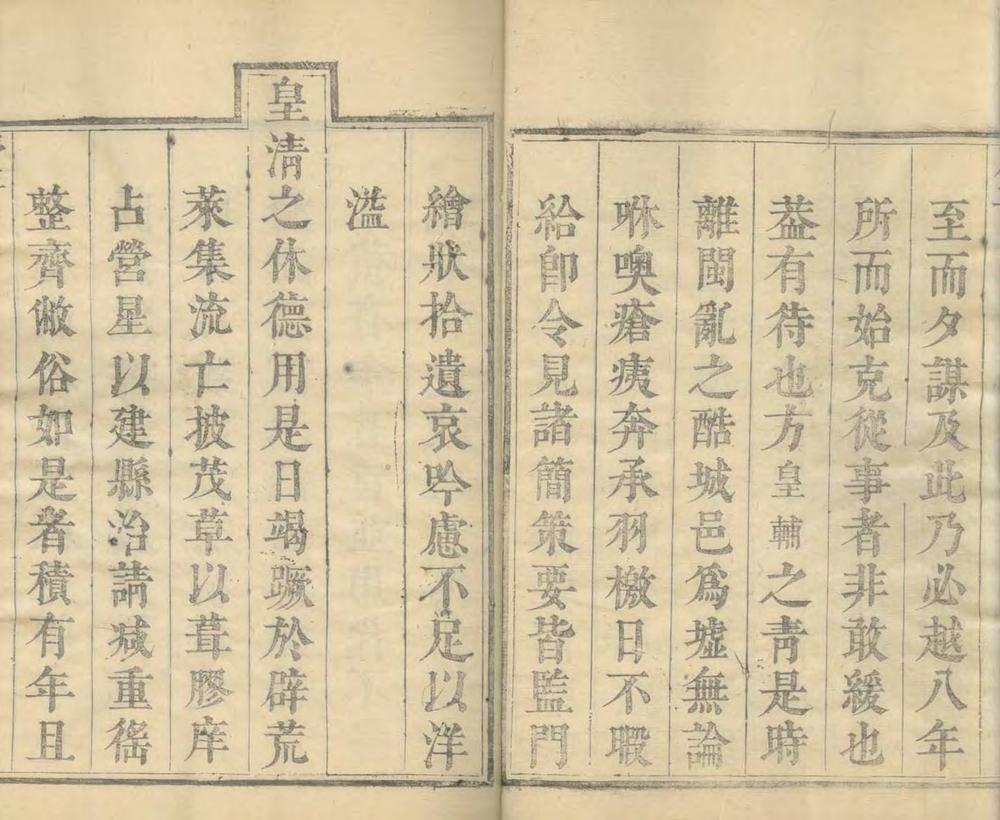 至而夕謀及此乃必越八年
所而始克從事者非敢緩也
葢有待也方皇輔之靑是時
離闖亂之酷城邑爲墟無論
咻噢瘡痍奔承羽檄日不暇
給卽令見諸簡策要皆監門
繪狀拾遺哀吟慮不足以洋
溢
皇淸之休德用是日竭蹶於辟荒
萊集流亡披茂草以葺膠庠
占營星以建縣治請减重徭
整齊敝俗如是者積有年且